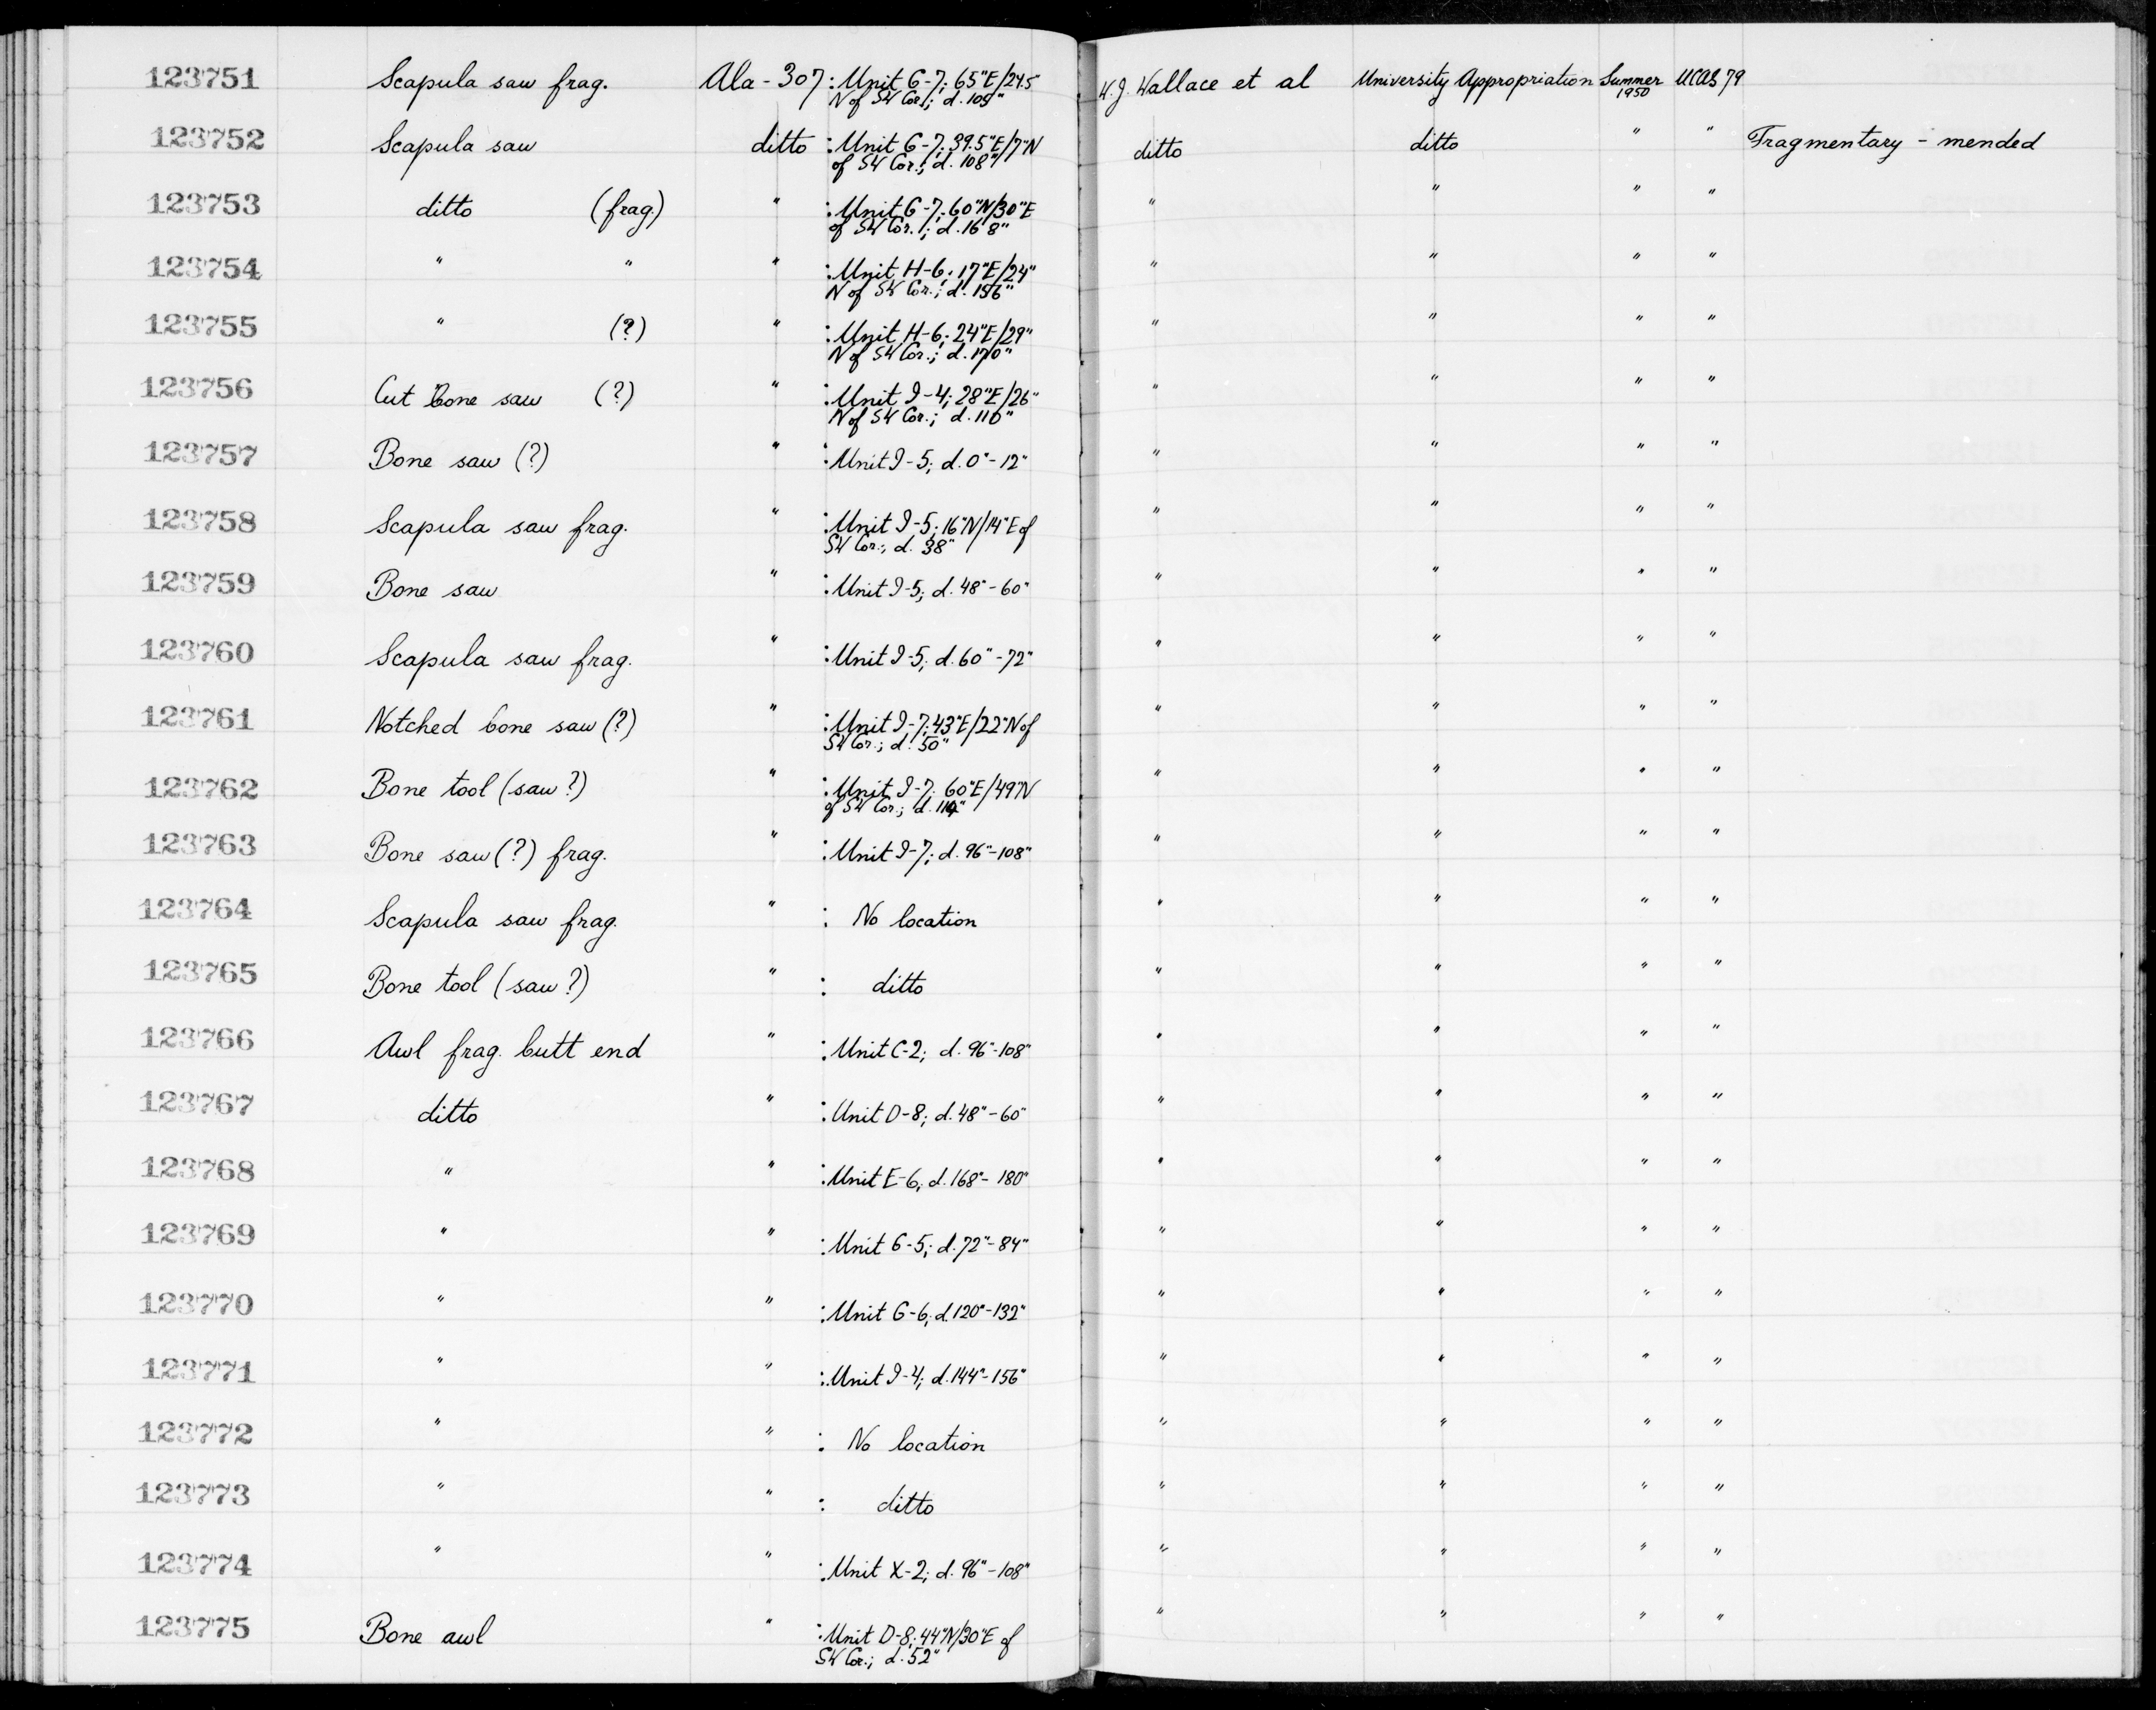 123751 Scapula saw frag. Ala-307 : Unit G-7; 65"E/24.5" W.J. Wallace et al University Appropriation Summer 1950 UCAS 79
N of SW Cor.; d. 109"
123752 Scapula saw ditto : Unit G-7; 39.5"E/7"N ditto ditto " " Fragmentary - mended
of SW Cor.; d. 108"
123753 ditto (frag.) " : Unit G-7; 60"N/30"E " " " "
of SW Cor.; d. 168"
123754 " " " : Unit H-6; 17"E/24" " " " "
N of SW Cor.; d. 156"
123755 " (?) " : Unit H-6; 24"E/29" " " " "
N of SW Cor.; d. 170"
123756 Cut bone saw (?) " : Unit I-4; 28"E/26" " " " "
N of SW Cor.; d. 110"
123757 Bone saw (?) " : Unit I-5; d. 0"-12" " " " "
123758 Scapula saw frag. " : Unit I-5; 16"N/14"E of " " " "
SW Cor.; d. 38"
123759 Bone saw " : Unit I-5; d. 48"-60" " " " "
123760 Scapula saw frag. " : Unit I-5; d. 60"-72" " " " "
123761 Notched bone saw (?) " : Unit I-7; 43"E/22"N of " " " "
SW Cor.; d. 50"
123762 Bone tool (saw?) " : Unit I-7; 60"E/49"N " " " "
of SW Cor.; d. 114"
123763 Bone saw (?) frag. " : Unit I-7; d. 96"-108" " " " "
123764 Scapula saw frag. " : No location " " " "
123765 Bone tool (saw?) " : ditto " " " "
123766 Awl frag. butt end " : Unit C-2; d. 96"-108" " " " "
123767 ditto " : Unit D-8; d. 48"-60" " " " "
123768 " " : Unit E-6; d. 168"-180" " " " "
123769 " " : Unit G-5; d. 72"-84" " " " "
123770 " " : Unit G-6; d. 120"-132" " " " "
123771 " " : Unit I-4; d. 144"-156" " " " "
123772 " " : No location " " " "
123773 " " : ditto " " " "
123774 " " : Unit X-2; d. 96"-108" " " " "
123775 Bone awl " : Unit D-8; 44"N/30"E of " " " "
SW Cor.; d. 52"